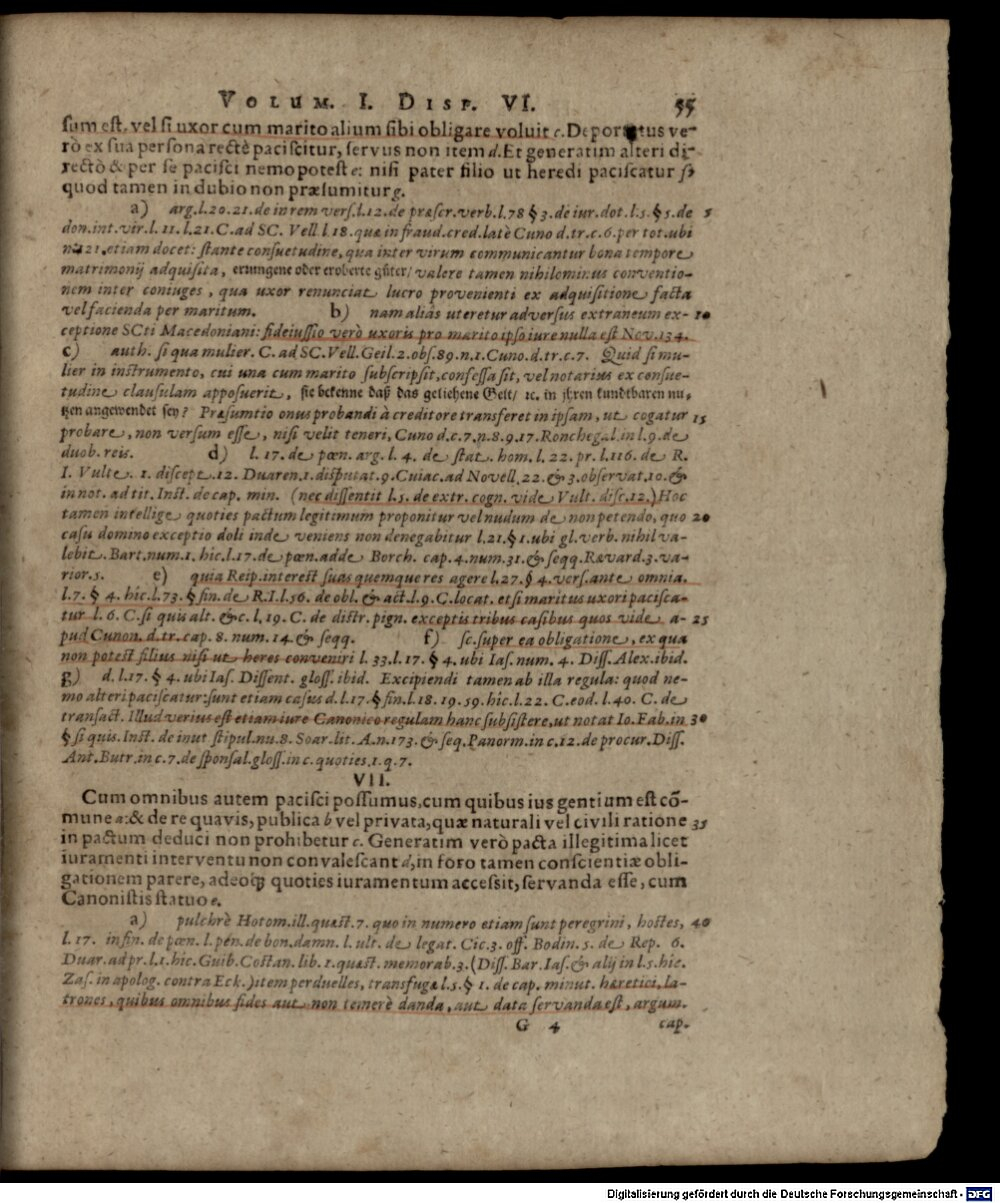 VOLUM. I. DISP. VI. 55
sum est, vel si uxor cum marito alium sibi obligare voluit c. Deportatus ve-
rò ex sua persona rectè paciscitur, servus non item d. Et generatim alteri di-
rectò & per se pacisci nemo potest e: nisi pater filio ut heredi paciscatur f,
quod tamen in dubio non præsumitur g.
a) arg. l. 20. 21. de in rem vers. l. 12. de præscr. verb. l. 78 § 3. de iur. dot. l. 5. § 5. de 5
don. int. vir. l. 11. l. 21. C. ad SC. Vell. l. 18. quæ in fraud. cred. latè Cuno d. tr. c. 6. per tot. ubi
nu. 21. etiam docet: stante consuetudine, qua inter virum communicantur bona tempore
matrimonij adquisita, errungene oder eroberte güter/ valere tamen nihilominus conventio-
nem inter coniuges, qua uxor renunciat lucro provenienti ex adquisitione facta
vel facienda per maritum. b) nam aliâs uteretur adversus extraneum ex- 10
ceptione SCti Macedoniani: fideiussio verò uxoris pro marito ipso iure nulla est Nov. 134.
c) auth. si qua mulier. C. ad SC. Vell. Geil. 2. obs. 89. n. 1. Cuno. d. tr. c. 7. Quid si mu-
lier in instrumento, cui una cum marito subscripsit, confessa sit, vel notarius ex consue-
tudine clausulam apposuerit, sie bekenne daß das geliehene Gelt/ ꝛc. in jhren kundtbaren nu-
tzen angewendet sey? Præsumtio onus probandi à creditore transferet in ipsam, ut cogatur 15
probare, non versum esse, nisi velit teneri, Cuno d. c. 7. n. 8. 9. 17. Ronchegal. in l. 9. de
duob. reis. d) l. 17. de pœn. arg. l. 4. de stat. hom. l. 22. pr. l. 116. de R.
I. Vulte. 1. discept. 12. Duaren. 1. disputat. 9. Cuiac. ad Novell. 22. & 3. observat. 10. &
in not. ad tit. Inst. de cap. min. (nec dissentit l. 5. de extr. cogn. vide Vult. disc. 12.) Hoc
tamen intellige quoties pactum legitimum proponitur vel nudum de non petendo, quo 20
casu domino exceptio doli inde veniens non denegabitur l. 21. § 1. ubi gl. verb. nihil va-
lebit. Bart. num. 1. hic. l. 17. de pœn. adde Borch. cap. 4. num. 31. & seqq. Rævard. 3. va-
rior. 5. e) quia Reip. interest suas quemque res agere l. 27. § 4. vers. ante omnia.
l. 7. § 4. hic. l. 73. § fin. de R. I. l. 56. de obl. & act. l. 9. C. locat. etsi maritus uxori pacisca-
tur l. 6. C. si quis alt. & c. l. 19. C. de distr. pign. exceptis tribus casibus quos vide a- 25
pud Cunon. d. tr. cap. 8. num. 14 & seqq. f) sc. super ea obligatione, ex qua
non potest filius nisi ut heres conveniri l. 33. l. 17. § 4. ubi Ias. num. 4. Diss. Alex. ibid.
g) d. l. 17. § 4. ubi Ias. Dissent. gloss. ibid. Excipiendi tamen ab illa regula: quod ne-
mo alteri paciscatur: sunt etiam casus d. l. 17. § fin. l. 18. 19. 59. hîc. l. 22. C. eod. l. 40. C. de
transact. Illud verius est etiam iure Canonico regulam hanc subsistere, ut notat Io. Fab. in 30
§ si quis. Inst. de inut stipul. nu. 8. Soar. lit. A. n. 173. & seq. Panorm. in c. 12. de procur. Diss.
Ant. Butr. in c. 7. de sponsal. gloss. in c. quoties. 1. q. 7.
VII.
Cum omnibus autem pacisci possumus, cum quibus ius gentium est cõ-
mune a: & de re quavis, publica b vel privata, quæ naturali vel civili ratione 35
in pactum deduci non prohibetur c. Generatim verò pacta illegitima licet
iuramenti interventu non convalescant d, in foro tamen conscientiæ obli-
gationem parere, adeoq́; quoties iuramentum accessit, servanda esse, cum
Canonistis statuo e.
a) pulchrè Hotom. ill. quæst. 7. quo in numero etiam sunt peregrini, hostes, 40
l. 17. in fin. de pœn. l. pen. de bon. damn. l. ult. de legat. Cic. 3. off. Bodin. 5. de Rep. 6.
Duar. ad pr. l. 1. hic. Guib. Costan. lib. 1. quæst. memorab. 3. (Diss. Bar. Ias. & alij in l. 5. hic.
Zas. in apolog. contra Eck.) item perduelles, transfugæ l. 5. § 1. de cap. minut. hæretici, la-
trones, quibus omnibus fides aut non temerè danda, aut data servanda est, argum.
G 4 cap.
Digitalisierung gefördert durch die Deutsche Forschungsgemeinschaft - DFG